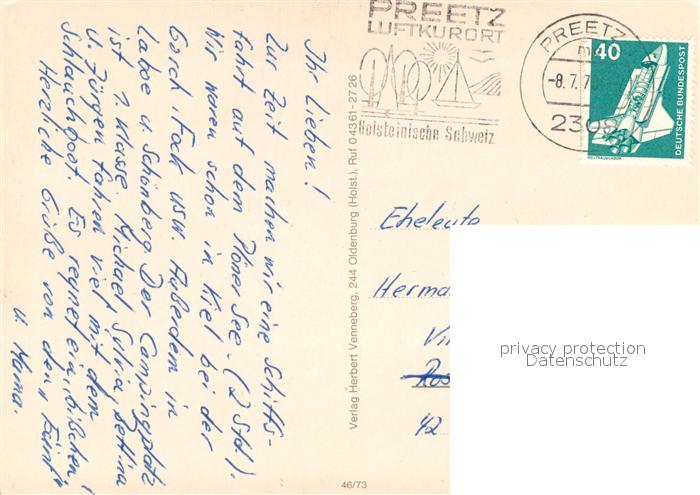 Ihr Lieben!
Zur Zeit machen wir eine Schiffs-
fahrt auf dem Plöner See. (2 Std).
Wir waren schon in Kiel bei der
Gorch-Foch usw. Außerdem in
Laboe u. Schönberg. Der Campingplatz
ist 1. Klasse. Michael, Silvia, Bettina
u. Jürgen fahren viel mit dem
Schlauchboot. Es regnet ein bißchen!
Herzliche Grüße von den
u. Mama.
Verlag Herbert Venneberg, 244 Oldenburg (Holst.), Ruf 04361-2726
46/73
PREETZ
LUFTKURORT
Holsteinische Schweiz
PREETZ
-8.7.
40
DEUTSCHE BUNDESPOST
WELTRAUMLABOR
Eheleute
Herma
42
privacy protection
Datenschutz